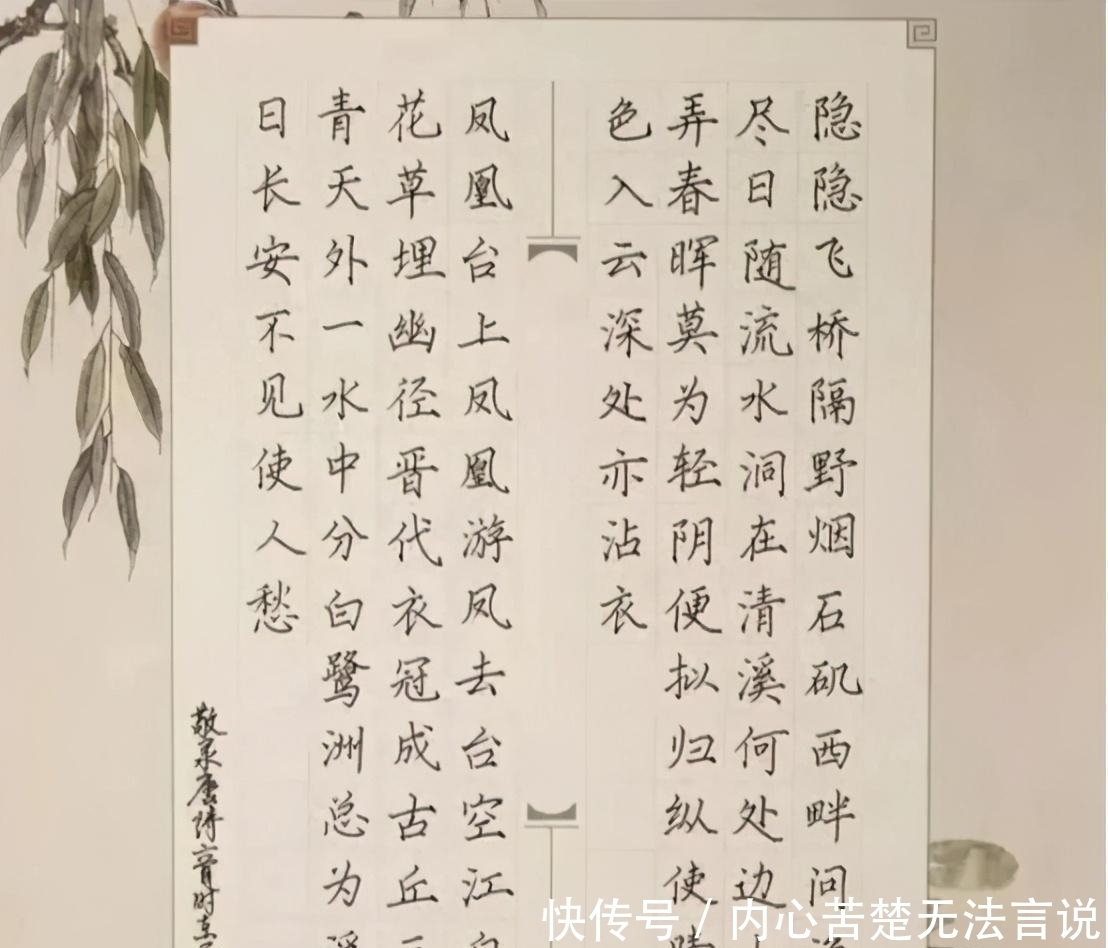 隐隐飞桥隔野烟石矶西畔问
尽日随流水洞在清溪何处边
弄春晖莫为轻阴便拟归纵使
色入云深处亦沾衣
凤凰台上凤凰游凤去台空江
花草埋幽径晋代衣冠成古丘
青天外一水中分白鹭洲总为
日长安不见使人愁
敬录唐诗二首时在
快传号/内心苦楚无法言说